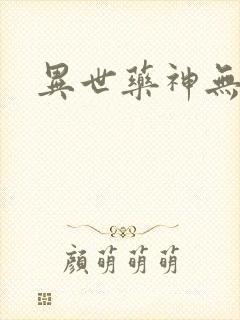 異世藥神無
顏萌萌萌